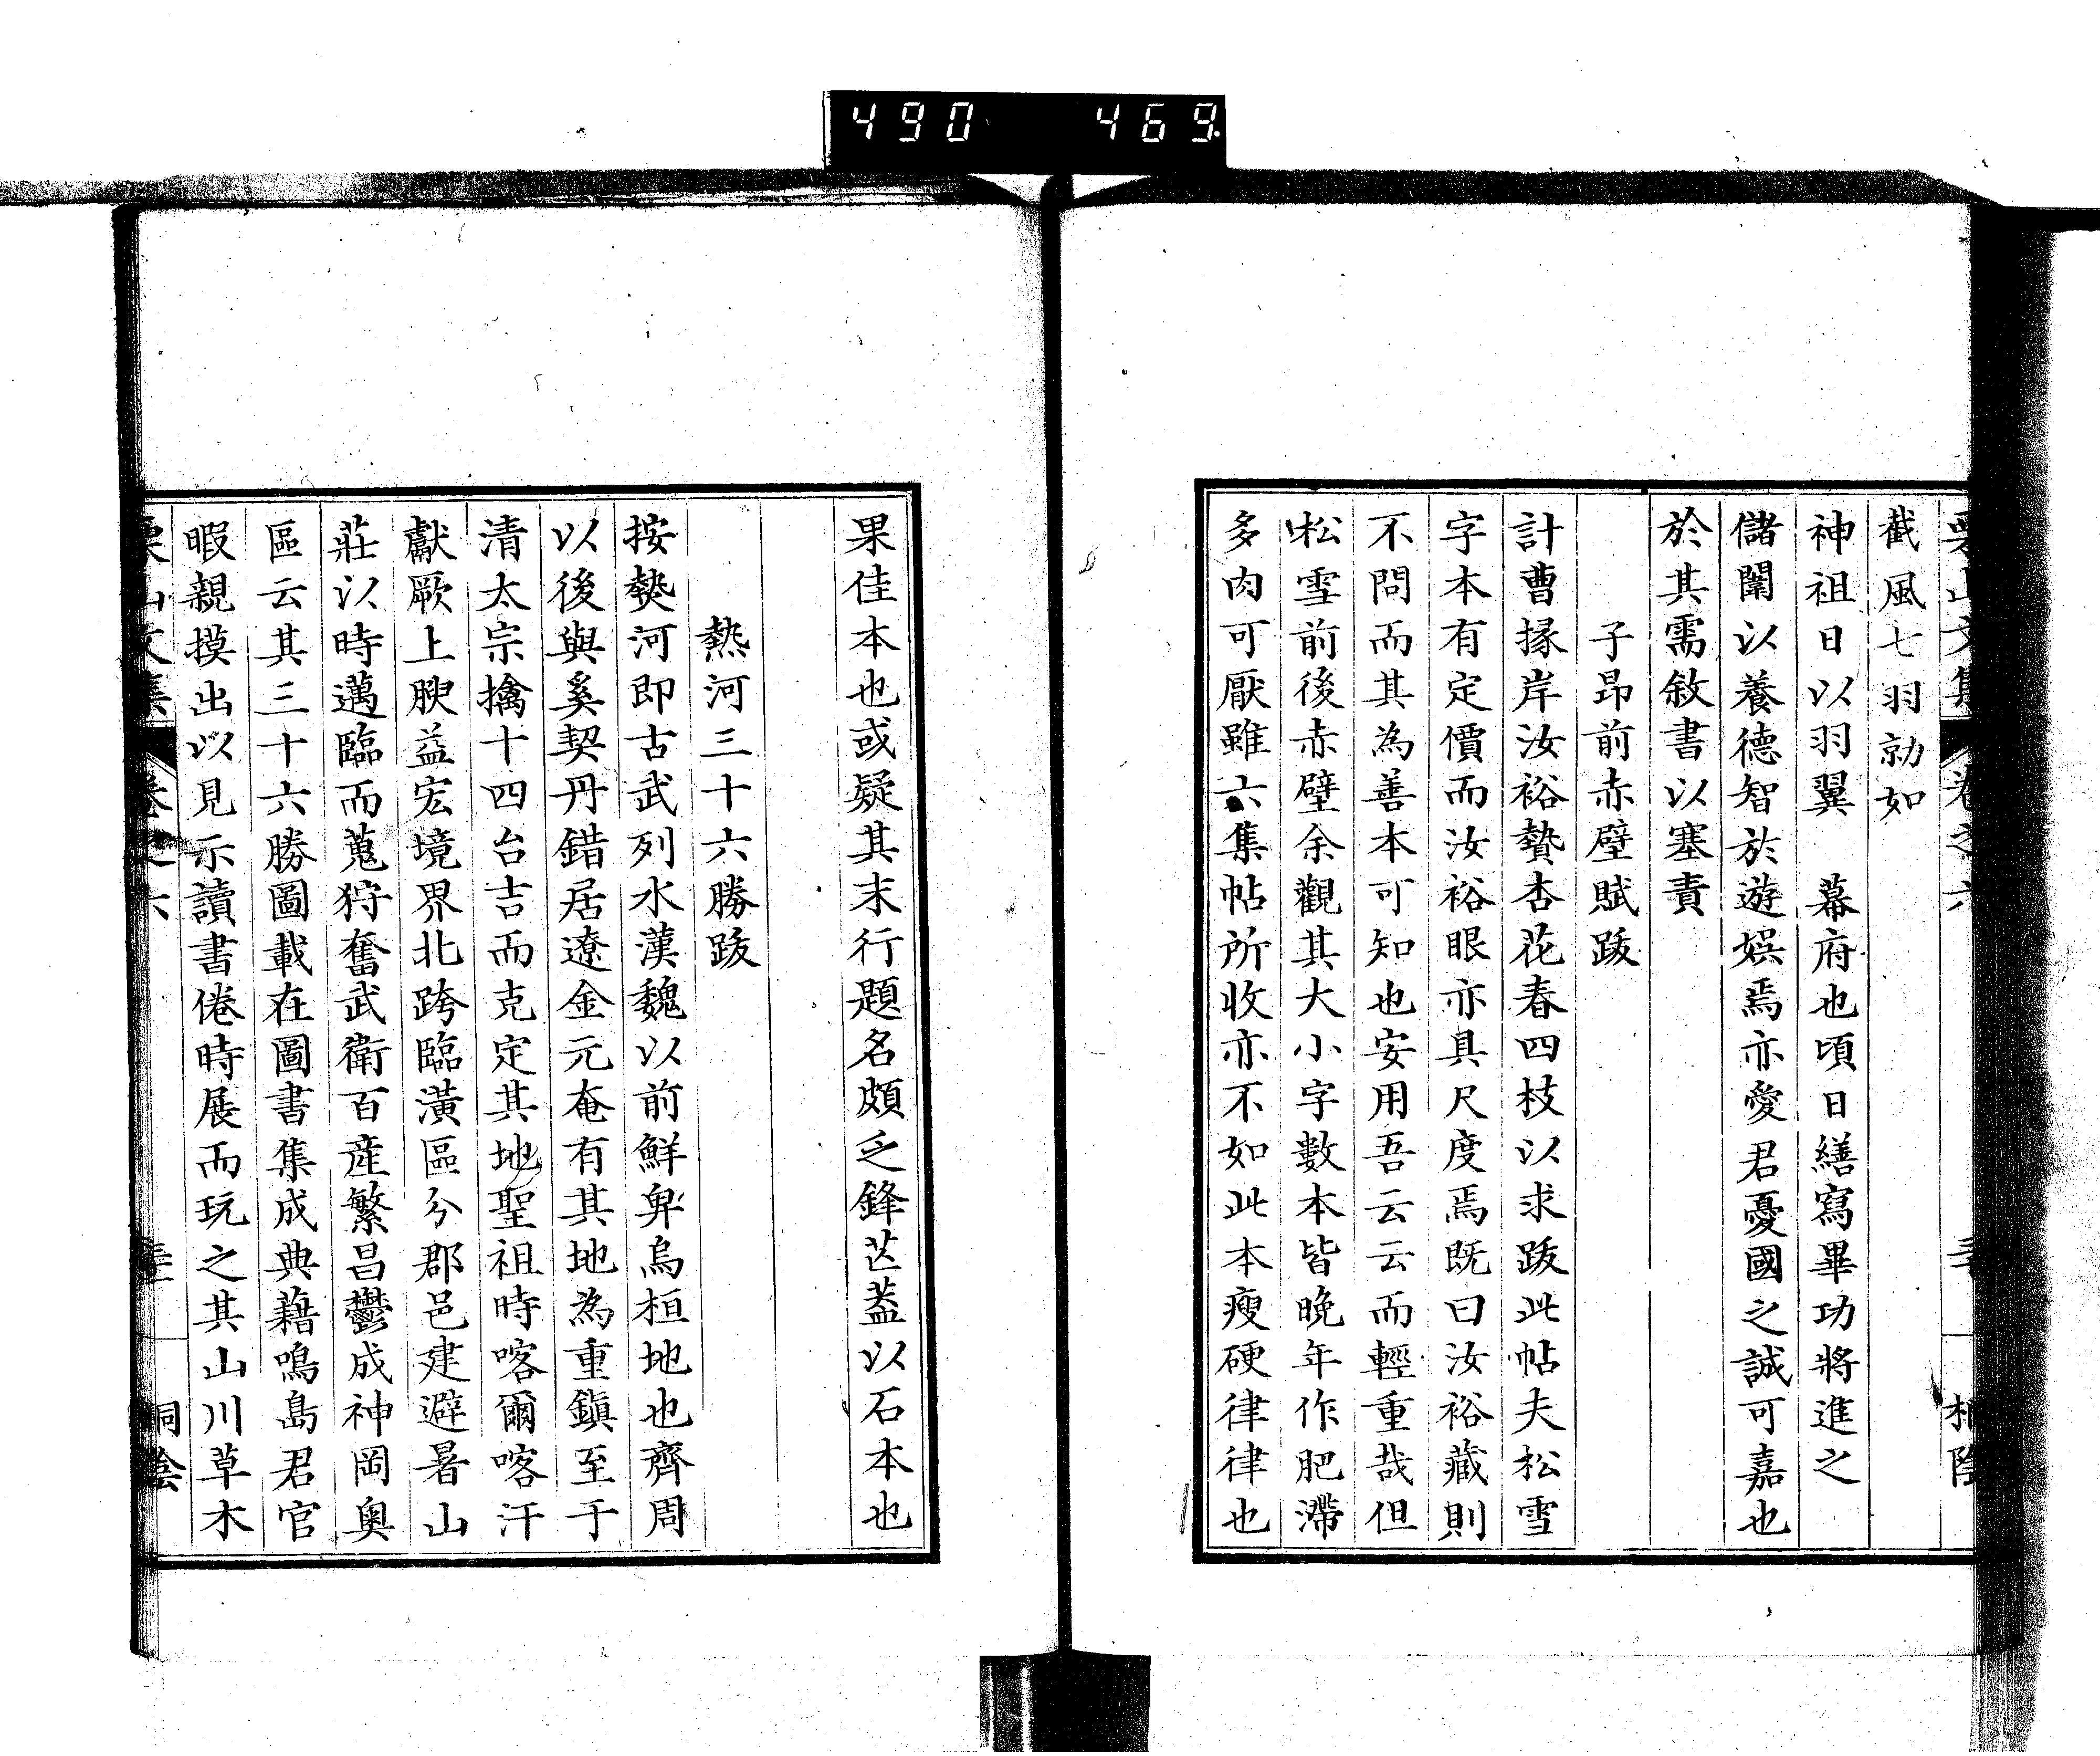 490 469
截風七羽勍如
神祖日以羽翼　幕府也頃日繕寫畢功將進之
儲闈以養德智於遊娯焉亦愛君憂國之誠可嘉也
於其需敘書以塞責
子昂前赤壁賦跋
計曹掾岸汝裕贄杏花春四枝以求跋此帖夫松雪
字本有定價而汝裕眼亦具尺度焉既曰汝裕藏則
不問而其為善本可知也安用吾云云而輕重哉但
松雪前後赤壁余觀其大小字數本皆晚年作肥滯
多肉可厭雖六集帖所收亦不如此本瘦硬律律也
果佳本也或疑其末行題名頗乏鋒芒蓋以石本也
熱河三十六勝跋
按熱河即古武列水漢魏以前鮮卑烏桓地也齊周
以後與奚契丹錯居遼金元奄有其地為重鎮至于
清太宗擒十四台吉而克定其地聖祖時喀爾喀汗
獻厥上腴益宏境界北跨臨潢區分郡邑建避暑山
莊以時邁臨而蒐狩奮武衛百産繁昌鬱成神岡奥
區云其三十六勝圖載在圖書集成典藉鳴島君官
暇親摸出以見示讀書倦時展而玩之其山川草木
栗山文集 卷之六 桐陰